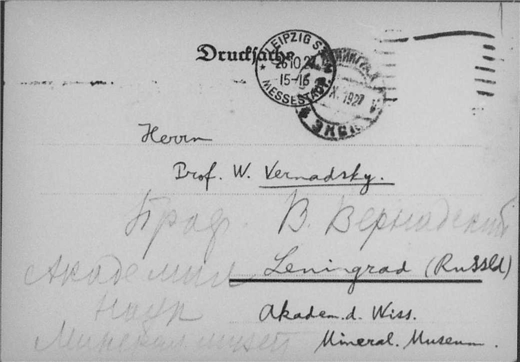 Drucksache
LEIPZIG
26.10.27
15-16
MESSESTADT
X.1927
Herrn
Prof. W. Vernadsky.
Проф. В. Вернадский
Leningrad (Russld)
Академия
Наук
Akadem. d. Wiss.
музей
Mineral. Museum.